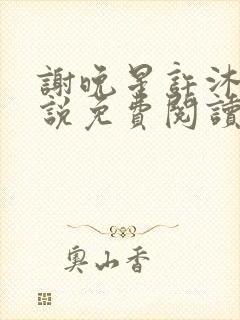 謝晚星許沐
說免費閱讀
奧山香